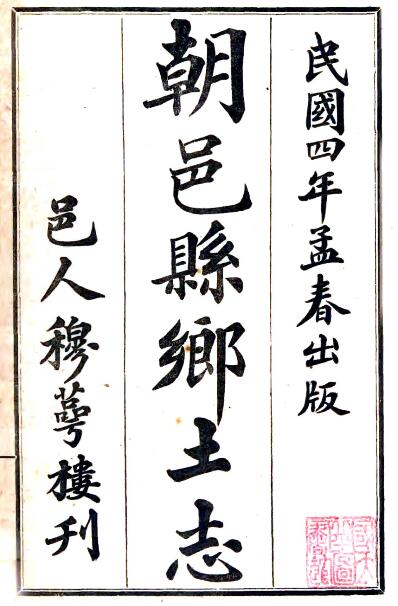 民國四年孟春出版
朝邑縣鄉土志
邑人穆萼樓刊